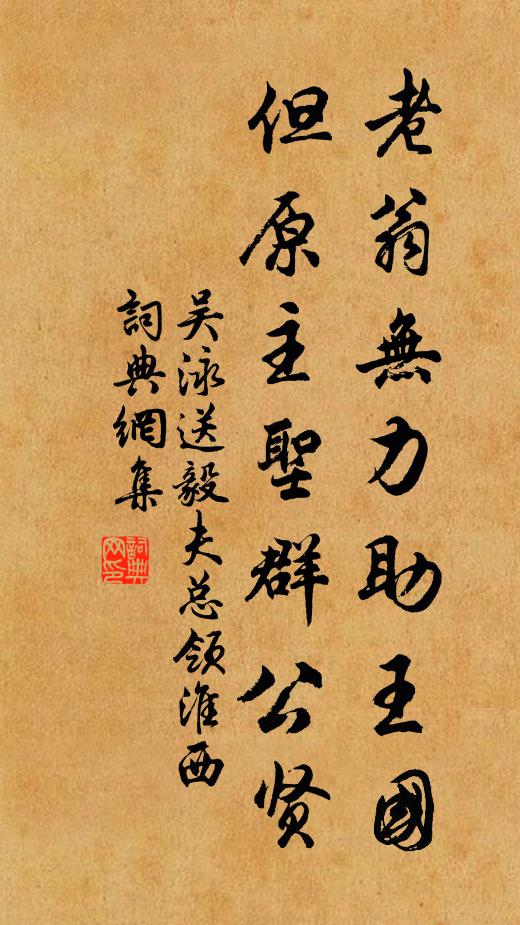 老翁無力助王國
但原主聖群公贤
吴泳送毅夫总领淮西
詞典網集
詞典網印